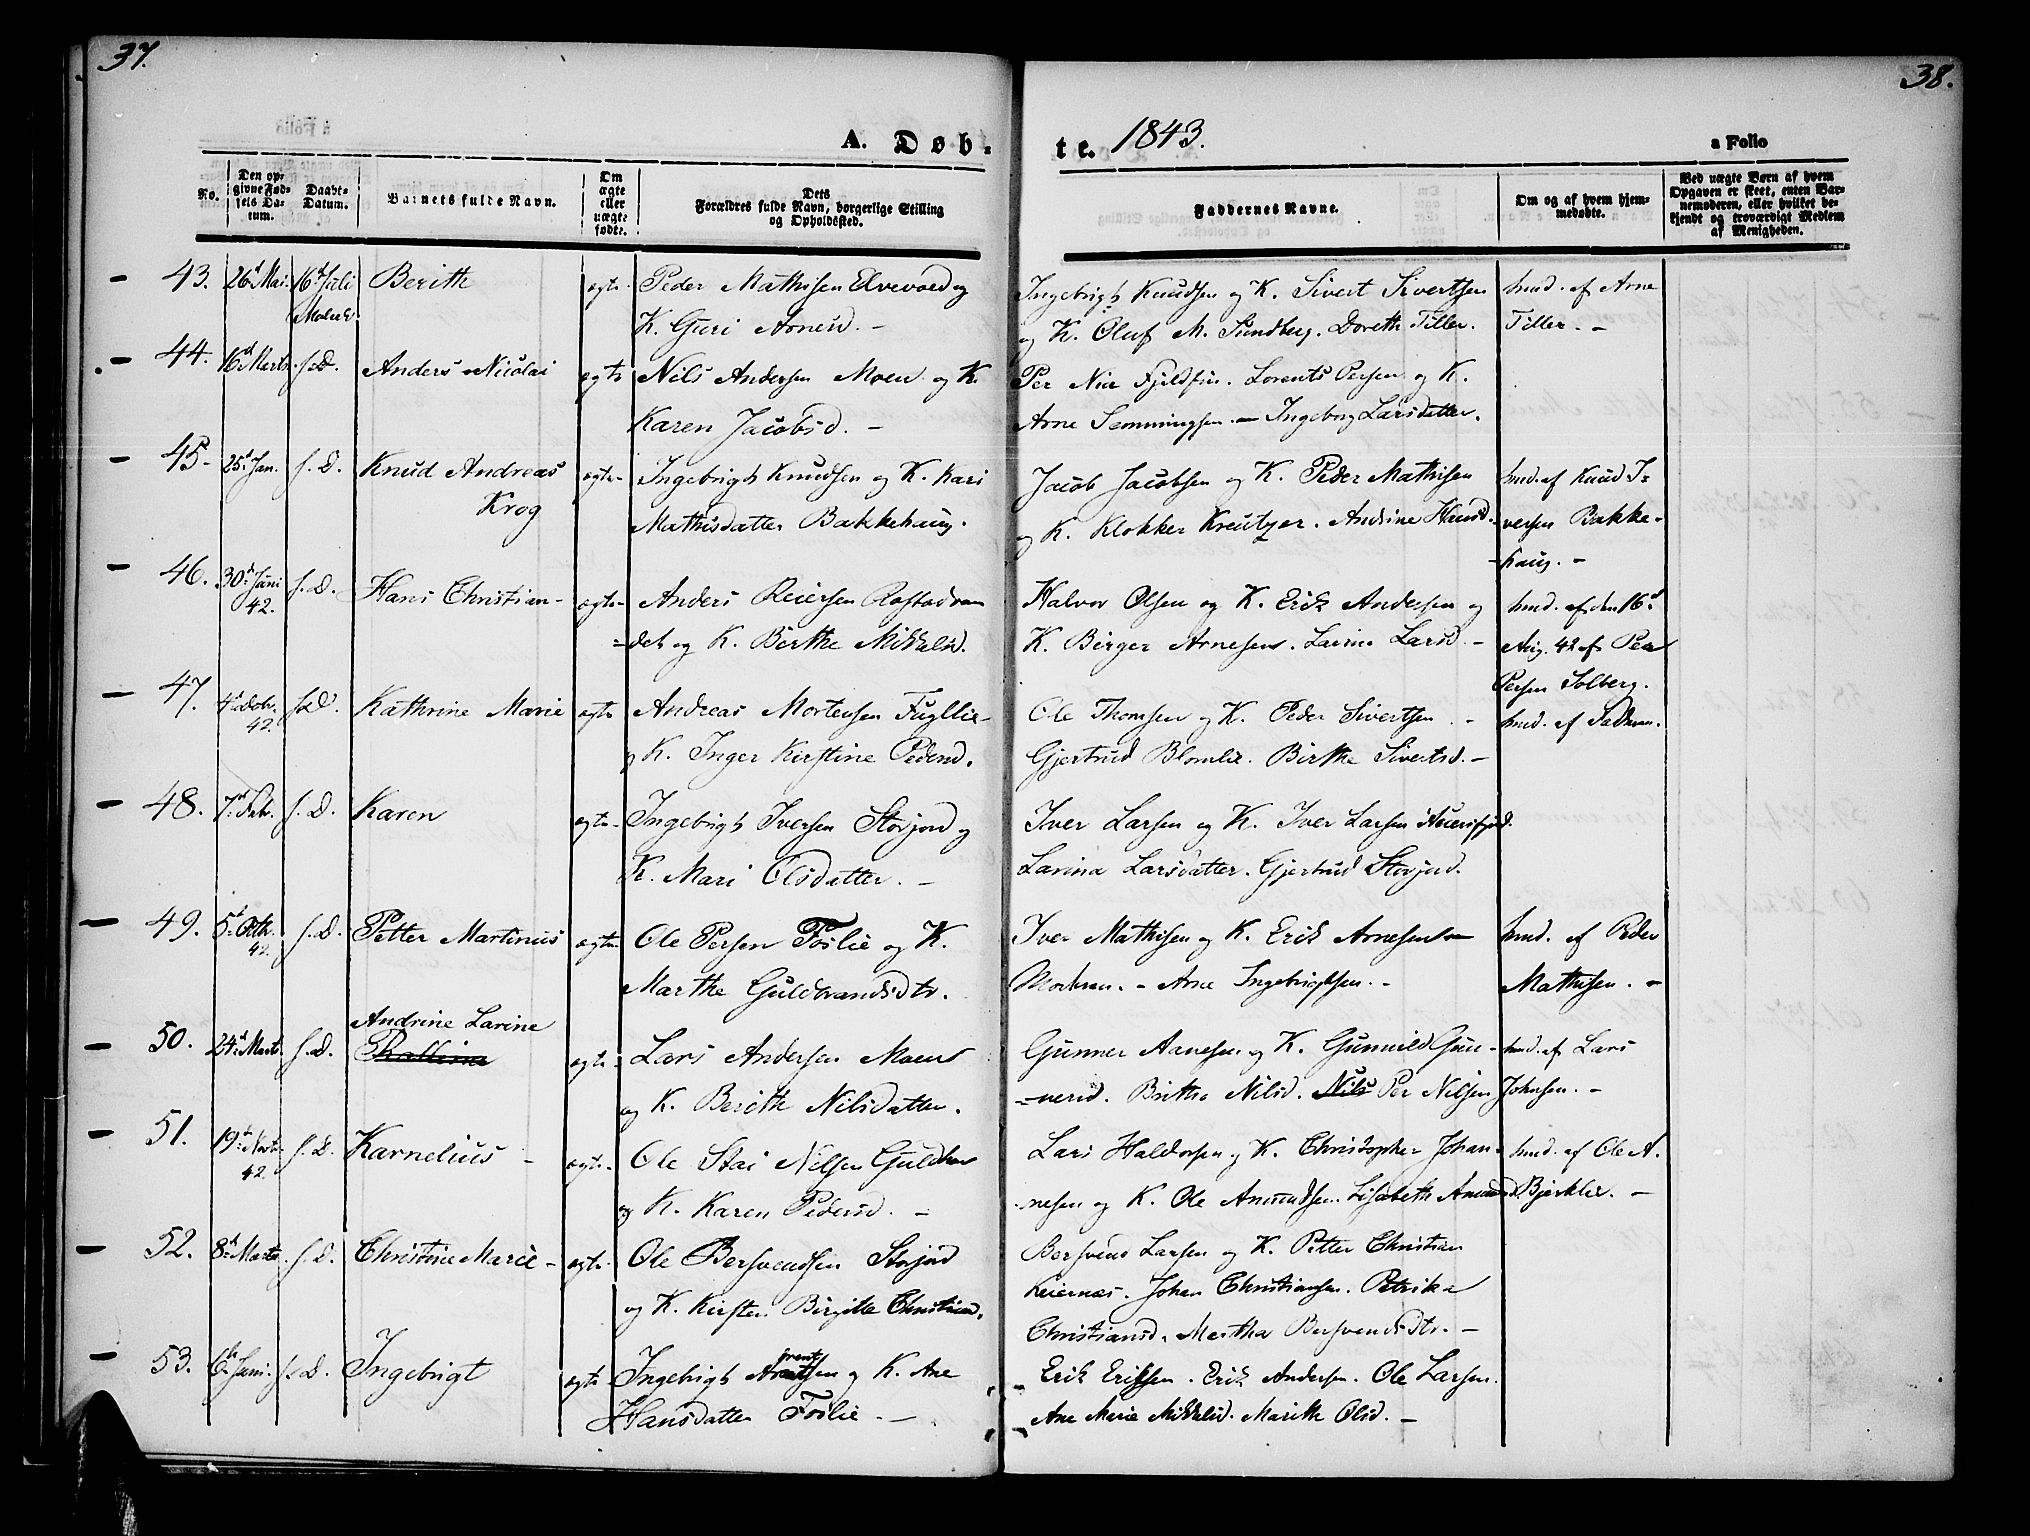 37.
38.
A. Døb-
te. 1843.
a Folio
No.
Den op-
givne Fød-
sels Da-
tum.
Daabs-
Datum.
Barnets fulde Navn.
Om
ægte
eller
uægte
fødte.
Dets
Forældres fulde Navn, borgerlige Stilling
og Opholdssted.
Faddernes Navne.
Om og af hvem hjem-
medøbte.
Ved uægte Børn af hvem
Opgaven er skeet, enten Bar-
nemoderen, eller hvilket be-
kjendt og troværdigt Medlem
af Menigheden.
43. 26d Mai. 16d Juli Berith ægte Peder Mathisen Elvevold og
K. Guri Arnesd. -
Ingebrigt Knudsen og K. Sivert Sivertsen
og K. Oluf M. Sundberg. Doreth Tiller.
hmd. af Arne
Tiller. -
44. 16d Marts. s. D. Anders Nicolai ægte Nils Andersen Moen og K.
Karen Jacobsd. -
Per Nia Fjeldfin. Lorents Persen og K.
Arne Semmingsen. - Ingeborg Larsdatter.
45. 25d Jan. s. D. Knud Andreas
Krog
ægte Ingebrigt Knudsen og K. Kari
Mathisdatter Bakkehaug.
Jacob Jacobsen og K. Peder Mathisen
og K. Klokker Kreutzer. Andrine Hansd.
hmd. af Knud I-
versen Bakke-
haug. -
46. 30d Juni
42.
s. D. Hans Christian- ægte Anders Reiersen Rostadvan
=det og K. Berthe Mikkelsd.
Halvor Olsen og K. Erik Andersen og
K. Birger Arnesen. Larine Larsd. -
hmd. af den 16d
Aug. 42 af Peer
Persen Solberg.
47. 4d
42.
s. D. Kathrine Marie ægte Andreas Mortensen Fugllie
og K. Inger Kirstine Pedersd.
Ole Thomsen og K. Peder Sivertsen. -
Gjertrud Blomlie. Birthe Sivertsd. -
hmd. af Faderen.
48. 7d Febr. s. D. Karen ægte Ingebrigt Iversen Storjord og
K. Mari Olsdatter. -
Iver Larsen og K. Iver Larsen
Larina Larsdatter. Gjertrud Storjord.
49. 5d Octb.
42.
s. D. Petter Martinus ægte Ole Persen Foslie og K.
Marthe Guldbrandsdtr.
Iver Mathisen og K. Erik Arnesen
Moderen. - Arne Ingebrigtsen. -
hmd. af Peder
Mathisen. -
50. 24d Marts s. D. Andrine Larine
ægte Lars Andersen Moen
og K. Berith Nilsdatter.
Gunner Aanesen og K. Gunnild Gun-
-nersd. Brithe Nilsd. Nils Per Nilsen
hmd. af Lars
Johnsen. -
51. 19d
42.
s. D. Karnelius - ægte Ole Stai Nilsen Guldhav
og K. Karen Pedersd. -
Lars Haldorsen og K. Christopher Johan-
nesen og K. Ole Amundsen. Lisabeth Amundsd.
hmd. af Ole A.
Bjerklie. -
52. 8d Marts. s. D. Christine Marie - ægte Ole Bersvendsen Storjord
og K. Kirsten Birgitte Christiansd.
Bersvend Larsen og K. Petter Christian
Leiernæs. Johan Christiansen. Petrikke
Christiansd. Martha Bersvendsdtr. -
53. 6te Juni. s. D. Ingebrigt ægte Ingebrigt Arentsen og K. Ane
Hansdatter Foslie. -
Erik Eriksen. Erik Andersen. Ole Larsen.
Ane Marie Mikkelsd. Marith Olsd. -